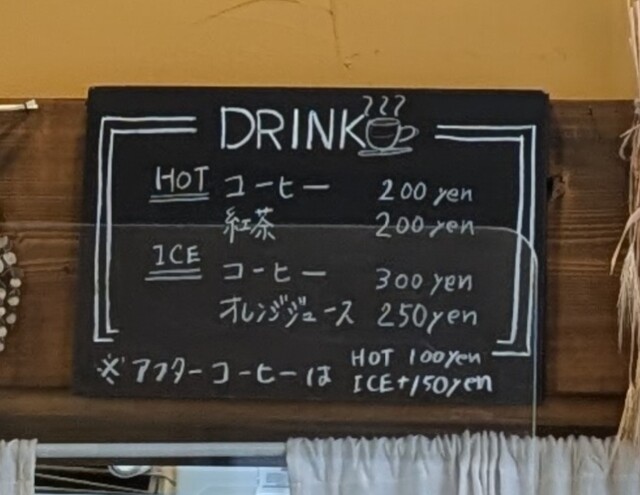 DRINK
HOT コーヒー 200 yen
紅茶 200 yen
ICE コーヒー 300 yen
オレンジジュース 250yen
※アフターコーヒーは HOT 100yen
ICE+150yen